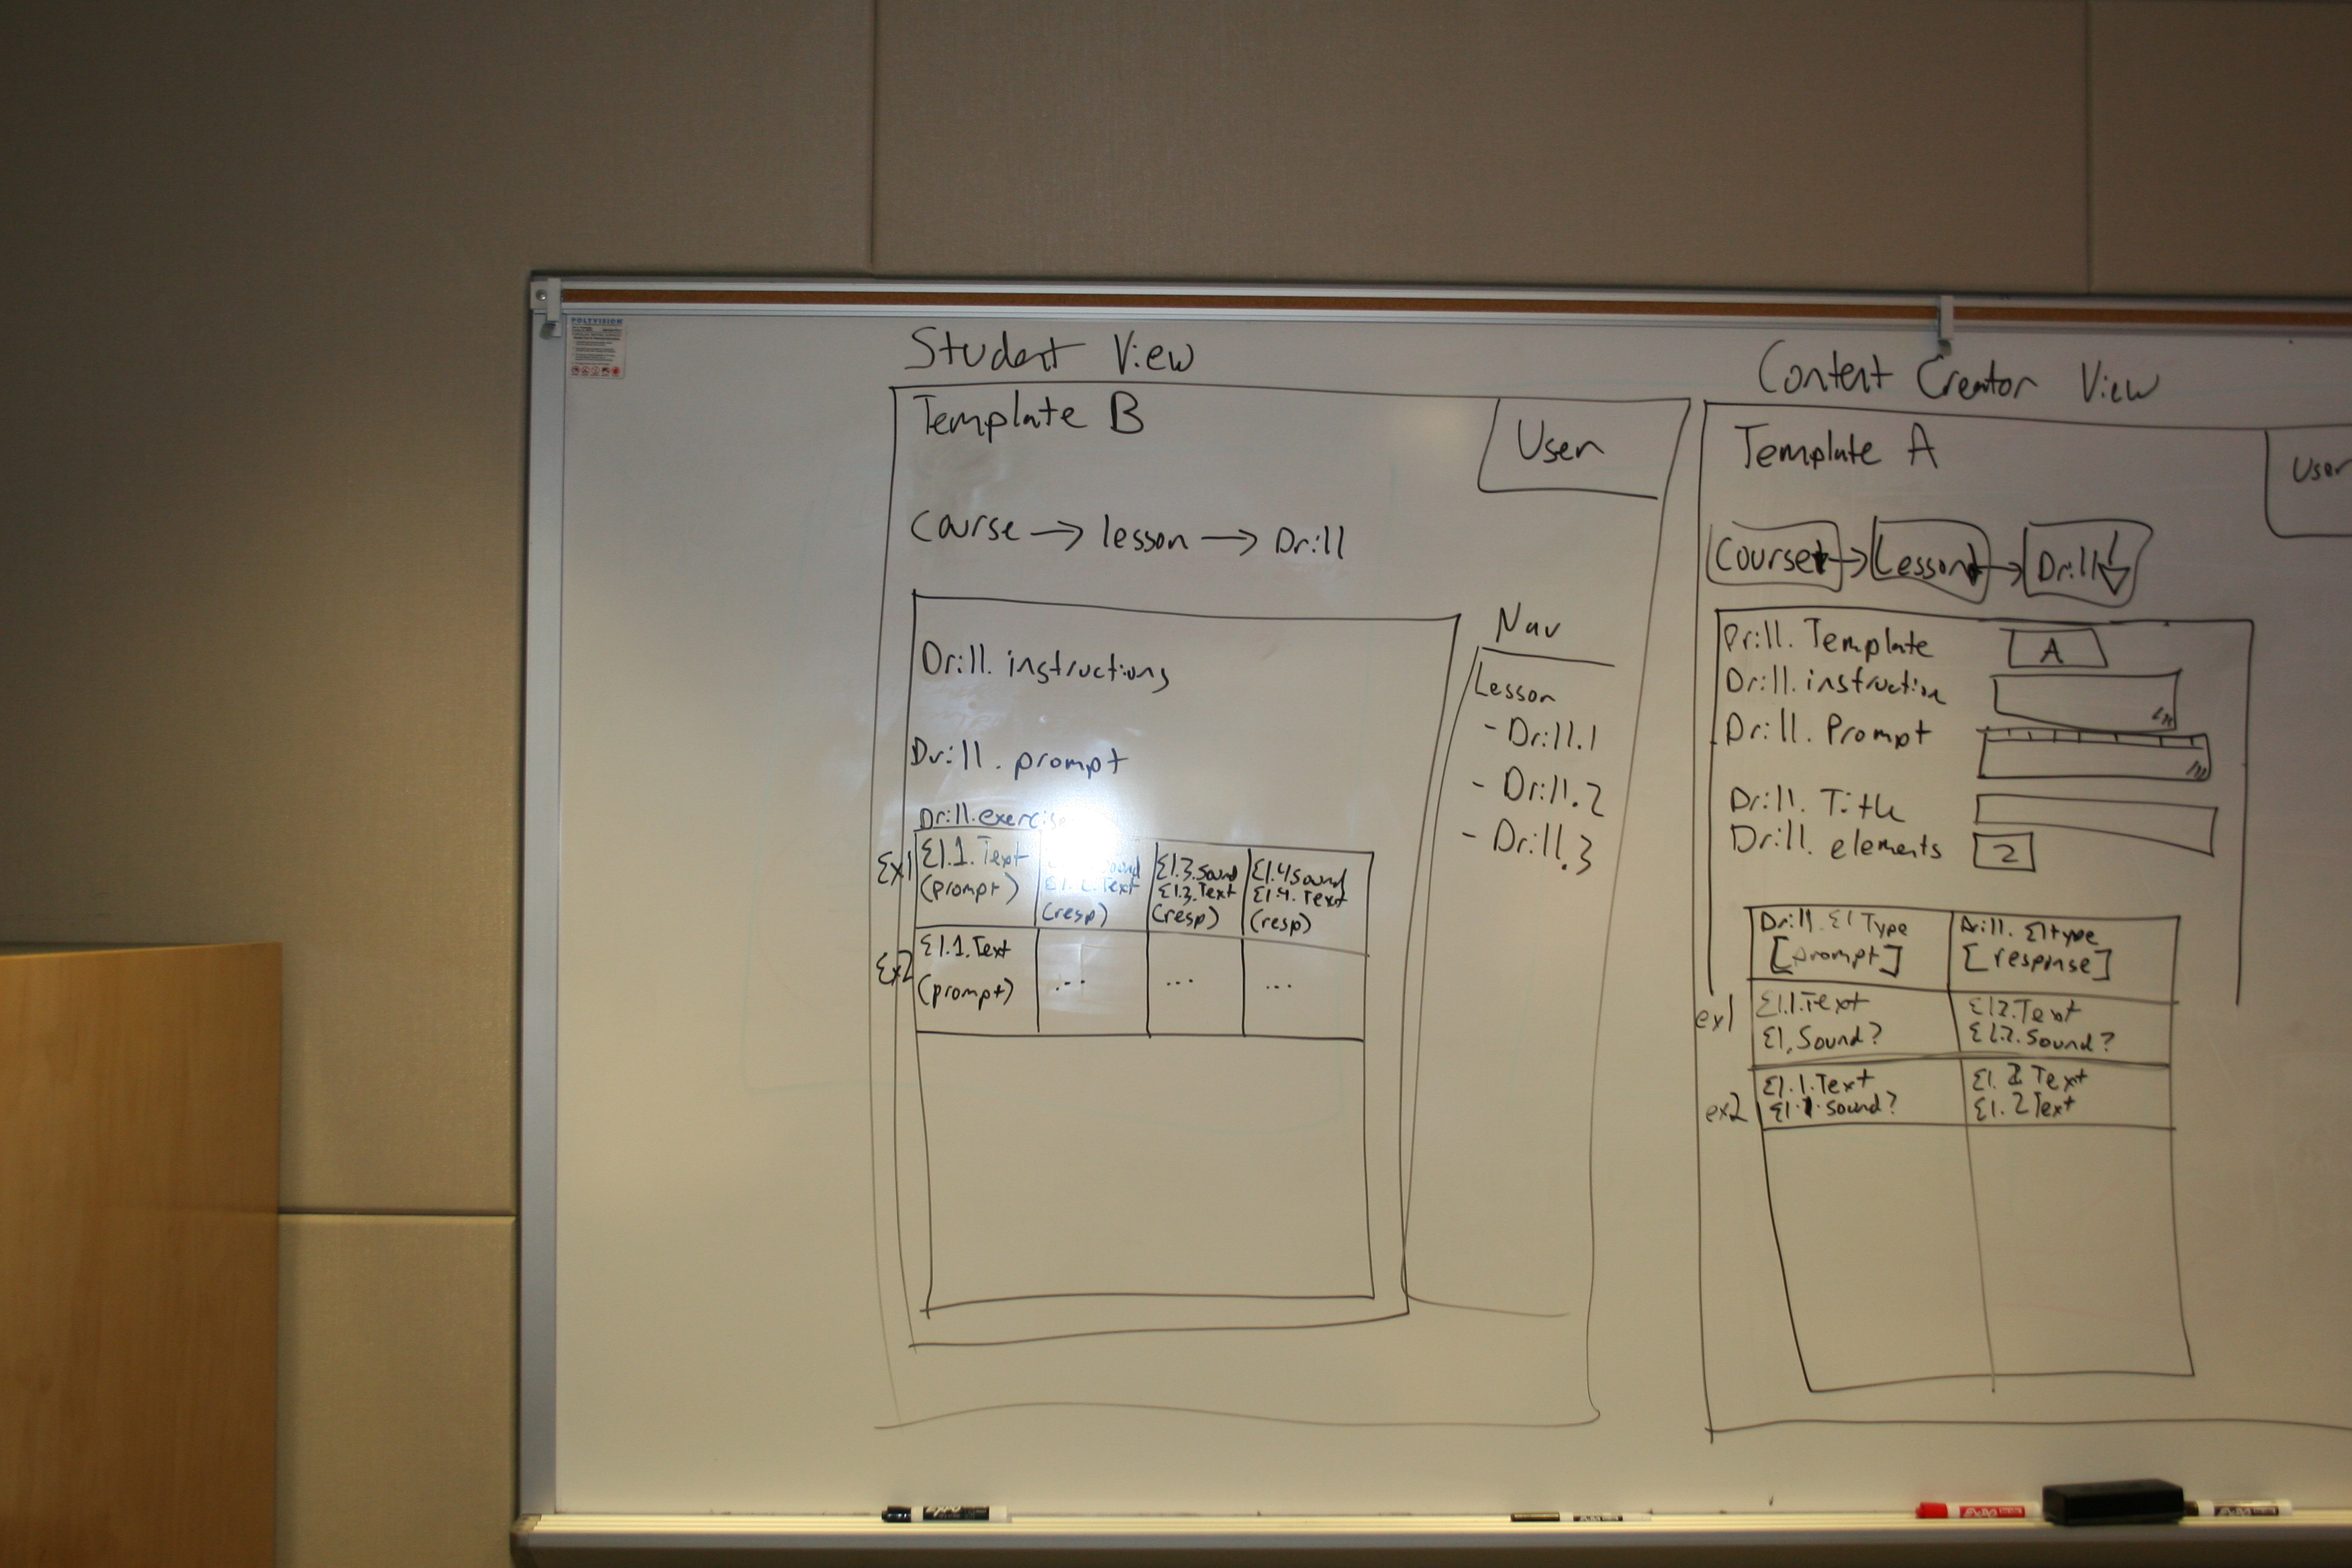 POLYVISION
Student View
Template B
User
Course → lesson → Drill
Drill. instructions
Drill. prompt
Drill.exercise
Ex1
El.1.Text
(prompt)
Sound
El.2.Text
(resp)
El.3.Sound
El.3.Text
(resp)
El.4 Sound
El.4.Text
(resp)
Ex2
El.1.Text
(prompt)
...
...
...
Nav
Lesson
- Drill.1
- Drill.2
- Drill.3
Content Creator View
Template A
User
Course → Lesson → Drill
Drill. Template A
Drill. instruction
Drill. Prompt
Drill. Title
Drill. elements 2
Drill. El Type
[prompt]
Drill. El type
[response]
ex1
El.1.Text
El, Sound?
El2.Text
El.2.Sound?
ex2
El.1.Text
El.1.Sound?
El.2 Text
El.2 Text
EXPO
EXPO